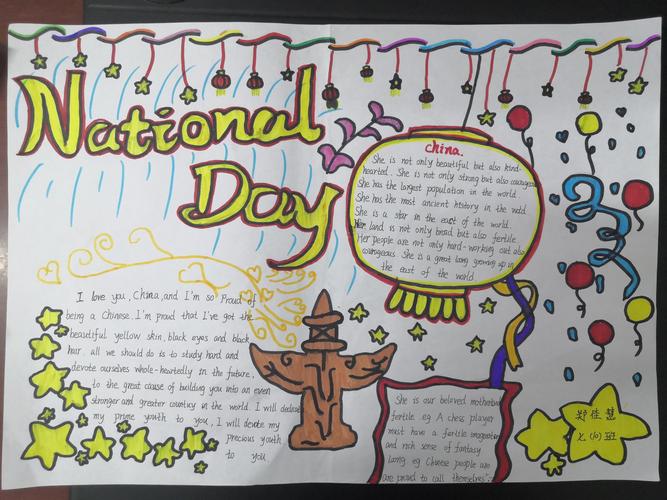 National
Day
China
She is not only beautiful but also kind-
hearted. She is not only strong but also courageous
She has the largest population in the world.
She has the most ancient history in the wold.
She is a star in the east of the world.
Her land is not only broad but also fertile.
Her people are not only hard-working but also
courageous. She is a great long growing up in
the east of the world
I love you, China, and I'm so Proud of
being a Chinese. I'm proud that I've got the
beautiful yellow skin, black eyes and black
hair. all we should do is to study hard and
devote ourselves whole-heartedly in the future.
to the great cause of building you into an even
stronger and greater country in the world. I will dedicate
my prime youth to you, I will devote my
precious youth
to you
She is our beloved motherland
fertile eg A chess player
must have a fertile imagination
and rich sense of fantasy
Long eg Chinese people are
are proud to call themselves"
郑佳慧
七(10)班